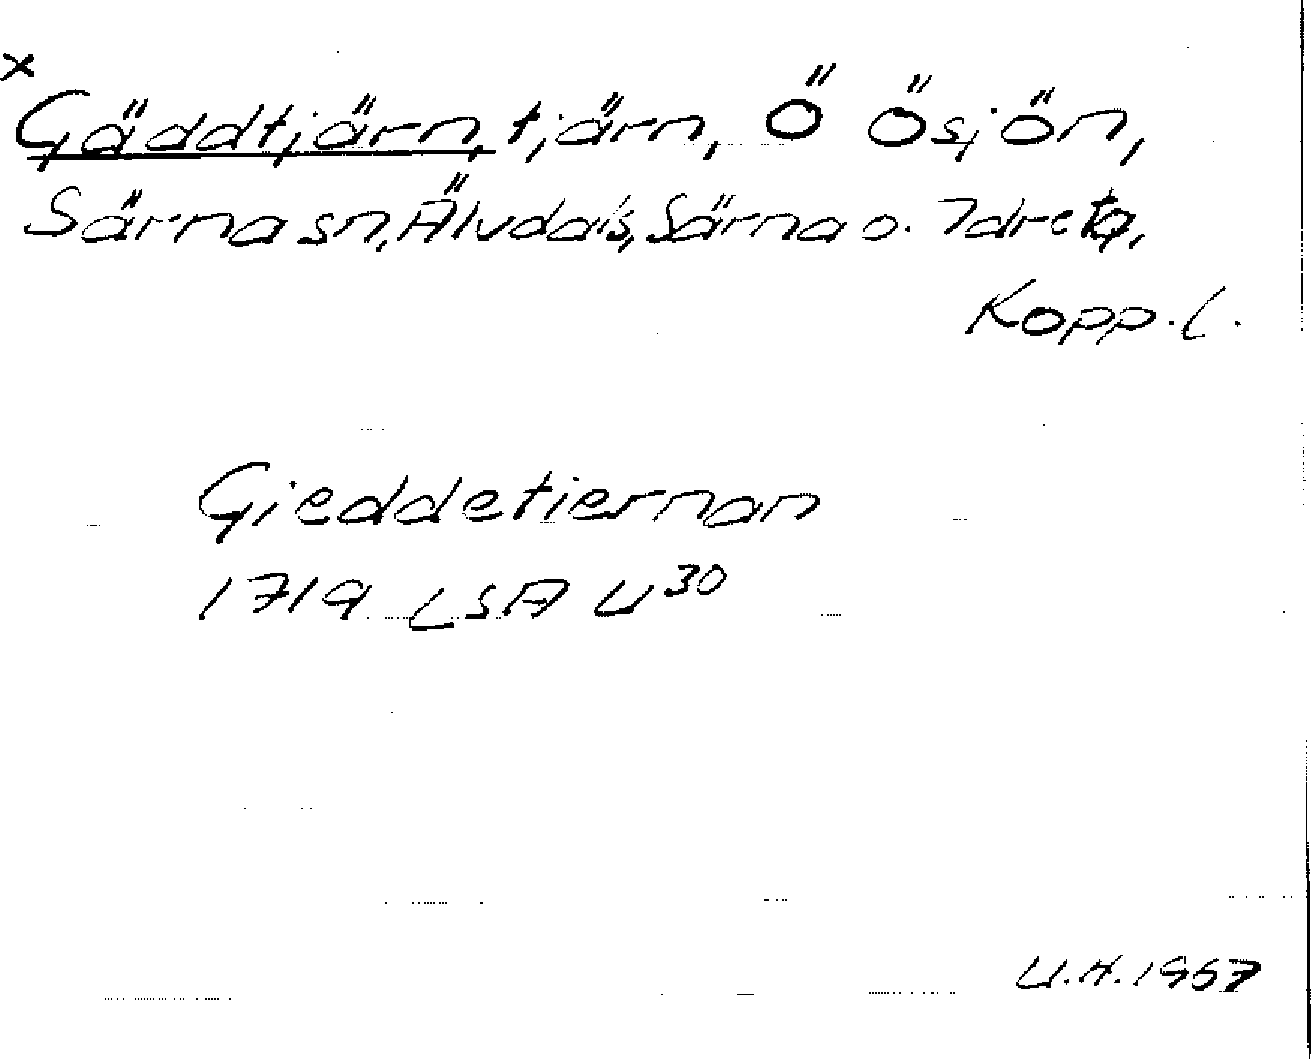 x
Gäddtjärn, tjärn, Ö Ösjön,
Särna sn, Älvdals, Särna o. Idre tg,
Kopp. l.
Gieddetiernan
1719 LSA U³⁰
U.H. 1957